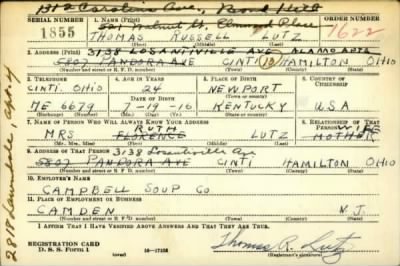 1312 Carolina Ave, Bond Hill
SERIAL NUMBER 1. NAME (Print) ORDER NUMBER
501 Walnut St. Elmwood Place
1855 THOMAS RUSSELL LUTZ 1622
(First) (Middle) (Last)
3138 LOSANTIVILLE AVE ALAMO APTS
2. ADDRESS (Print)
5807 PANDORA AVE CINTI (13) HAMILTON OHIO
(Number and street or R. F. D. number) (Town) (County) (State)
3. TELEPHONE 4. AGE IN YEARS 5. PLACE OF BIRTH 6. COUNTRY OF CITIZENSHIP
CINTI. OHIO 24 NEWPORT
DATE OF BIRTH (Town or county)
ME 6679 7-19-16 KENTUCKY USA
(Exchange) (Number) (Mo.) (Day) (Yr.) (State or country)
7. NAME OF PERSON WHO WILL ALWAYS KNOW YOUR ADDRESS 8. RELATIONSHIP OF THAT PERSON
RUTH WIFE
MRS FLORENCE LUTZ MOTHER
(Mr., Mrs., Miss) (First) (Middle) (Last)
9. ADDRESS OF THAT PERSON 3138 Losantiville Ave
5807 PANDORA AVE CINTI HAMILTON OHIO
(Number and street or R. F. D. number) (Town) (County) (State)
10. EMPLOYER'S NAME
CAMPBELL SOUP CO
11. PLACE OF EMPLOYMENT OR BUSINESS
CAMDEN N.J.
(Number and street or R. F. D. number) (Town) (County) (State)
I AFFIRM THAT I HAVE VERIFIED ABOVE ANSWERS AND THAT THEY ARE TRUE.
REGISTRATION CARD
D. S. S. Form 1 16-17105 Thomas R. Lutz
(Registrant's signature)
2818